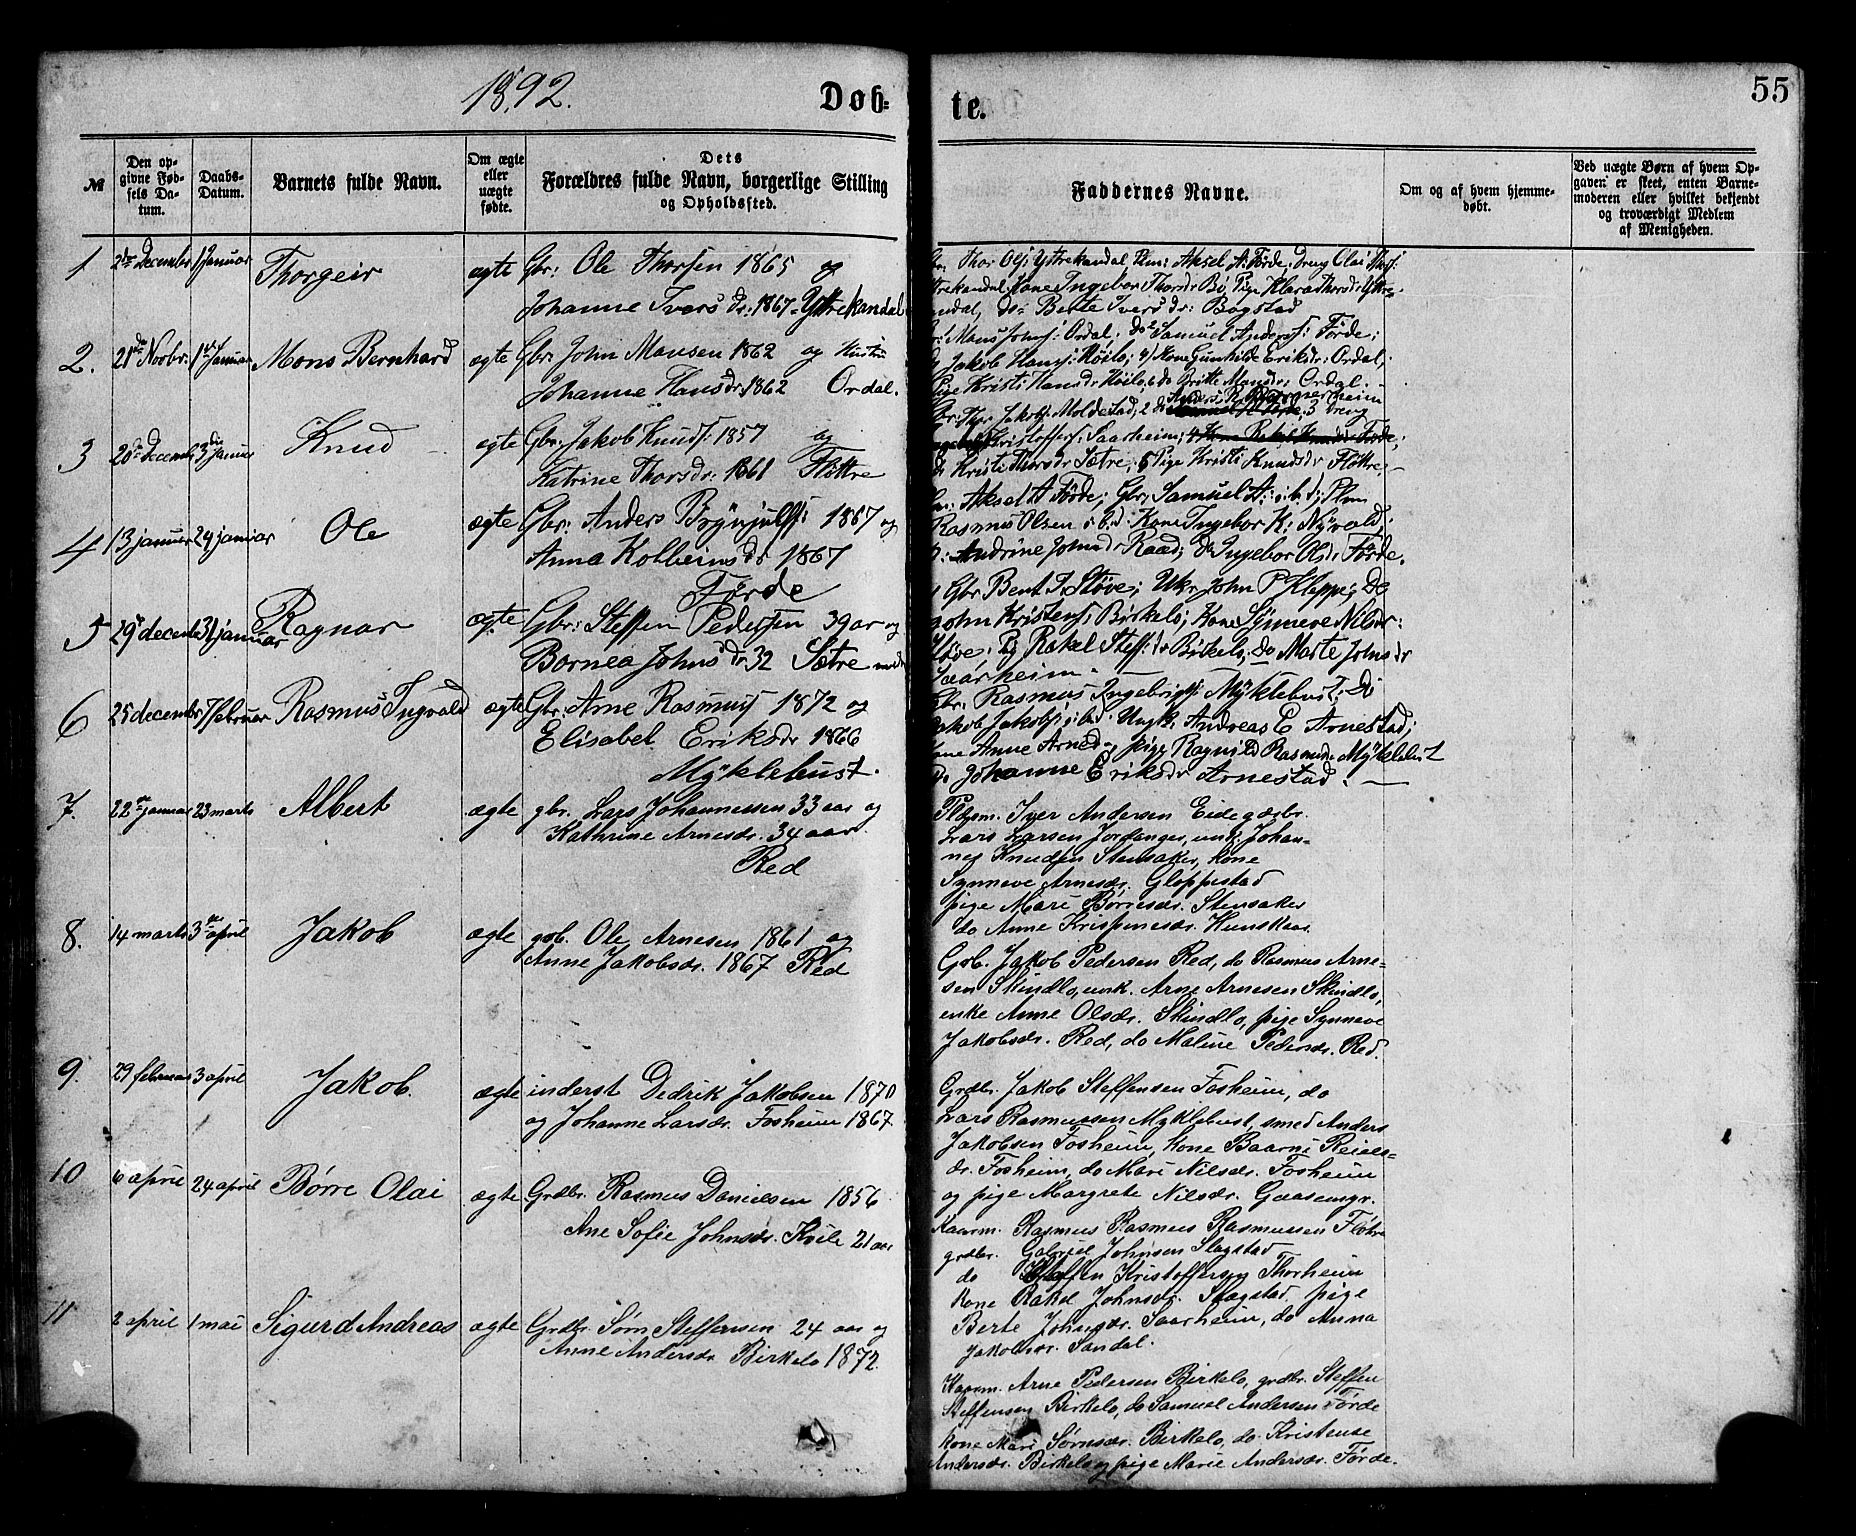 1892.
Døb-
te.
55
№
Den op-
givne Fød-
sels Da-
tum.
Daabs-
Datum.
Barnets fulde Navn.
Om ægte
eller
uægte
fødte.
Dets
Forældres fulde Navn, borgerlige Stilling
og Opholdssted.
Faddernes Navne.
Om og af hvem hjemme-
døbt.
Ved uægte Børn af hvem Op-
gaven er skeet, enten Barne-
moderen eller hvilket bekjendt
og troværdigt Medlem
af Menigheden.
1 2de December 1 Januar Thorgeir ægte Gbr: Ole Thorsen 1865 og
Johanne Ivers dr: 1867. Yttrekandal
Thor Ols: Yttrekandal Aksel A. Førde, dreng Olai
Kone Ingebor Thorsdr Bø, Pige Klara Thorsdr Yttre-
do- Berte Ivers dr: Bogstad
2. 21de Novbr: 1ste Januar Mons Bernhard ægte Gbr: John Monsen 1862 og Hustru
Johanne Hansdr. 1862 Ordal.
Mons Johns: Ordal; do Samuel Anders: Førde;
Jakob Hans: Høilo; 4) Kone Gunhilde Eriksdr: Ordal;
Pige Kristi Hansdr Høilo, 6 do Britte Monsdr, Ordal.
3 20de December 3die Januar Knud ægte Gbr: Jakob Knuds: 1857 og
Katrine Thorsdr: 1861 Fløttre
Jakobs: Moldestad, 2 do Anders R. 3 dreng
Kristoffers: Saarheim; 4 Kone Rakel Førde;
Kristi Thorsdr Sætre, 5 Pige Kristi Knudsdr Fløttre.
4 13 januar 24 januar Ole ægte Gbr: Anders Brynjulfs: 1867 og
Anna Kolbeinsdr 1867
Førde
Aksel A Førde; Gbr; Samuel A: i.b.d;
Rasmus Olsen i.b.d. Kone Ingebor K: Nyvold;
Andrine Johnsdr Raad; do Ingebor Olsdr Førde.
5 29de decembr 31 januar Ragnar ægte Gbr: Steffen Pedersen 39 ar og
Bornea Johnsdr 32 Sætre
Gbr Bent I. Støve; John P Kleppe; Do
John Kristens: Birkelo; Kone Synneve Nilsdr:
Støve; Pg Rakel Steffsdr Birkelo; Do Marte Johnsdr
Saarheim.
6 25 decembr 7 februar Rasmus Ingvald ægte Gbr. Arne Rasmuss 1872 og
Elisabet Eriksdr 1866
Myklebust.
Gbr. Rasmus Ingebrigts: Myklebust; Do
Jakob Jakobs: i.b.d. Ungk: Andreas E Arnestad;
Kone Anne Arnedr; pige Ragnild Rasmusdr Myklebust
Do Johanne Eriksdr Arnestad.
7. 22de januar 23 marts Albert ægte gbr. Lars Johannessen 33 aar og
Kathrine Arnesdr. 34 aar.
Red
Pldsm. Iver Andersen Eide gaardbr.
Lars Larsen Jordanger, unk. Johan-
nes Knudsen Stensaker, kone
Synneve Arnesdr. Gloppestad
pige Mari Børresdr. Stensaker
do Anne Krispinesdr. Hunskaar.
8. 14 marts 3de april Jakob ægte gbb. Ole Arnesen 1861 og
Anne Jakobsdr. 1867 Red
Gbb. Jakob Pedersen Red, do Rasmus Arne-
sen Skindlo, unk. Arne Arnesen Skindlo,
enke Anne Olsdr. Skindlo, pige Synneve
Jakobsdr. Red, do Maline Pedersdr. Red.
9. 29 februar 3 april Jakob. ægte inderst Dedrik Jakobsen 1870
og Johanne Larsdr. Fosheim 1867.
Grdbr. Jakob Steffensen Fosheim, do
Lars Rasmussen Myklebust, smed Anders
Jakobsen Fosheim, kone Baarni Reiels-
dr. Fosheim, do Mari Nilsdr. Fosheim
og pige Margrete Nilsdr. Gaasemyr.
10 6 april 24 april Børre Olai ægte Grdbr. Rasmus Danielsen 1856
Ane Sofie Johnsdr. Kvile 21 aar
Kaarm. Rasmus Rasmus Rasmussen Fløtre
grdbr. Gabriel Johnsen Slagstad
do Steffen Kristoffersen Thorheim
kone Rakel Johnsdr. Slagstad, pige
Berte Johnsdr. Saarheim, do Anna
Jakobsdr. Sandal.
11 2 april 1 mai Sigurd Andreas ægte Grdbr. Sørn Steffensen 24 aar og
Anne Andersdr Birkelo 1872.
Kaarm. Arne Pedersen Birkelo, grdbr. Steffen
Steffensen Birkelo, do Samuel Andersen Førde
kone Mari Sørnsdr. Birkelo, do Kristense
Andersdr. Birkelo og pige Marie Andersdr. Førde.